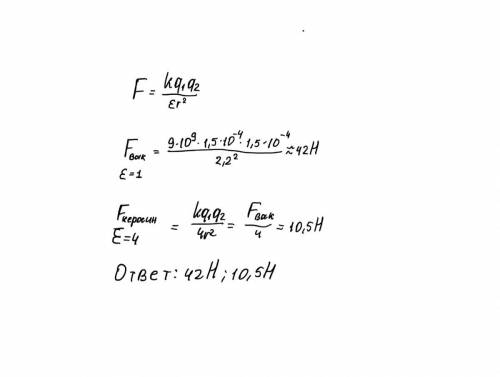 F = kq₁q₂ / εr²
Fвак = 9·10⁹·1,5·10⁻⁴·1,5·10⁻⁴ / 2,2² ≈ 42Н
ε=1
Fкеросин = kq₁q₂ / 4r² = Fвак / 4 = 10,5Н
ε=4
Ответ: 42Н; 10,5Н